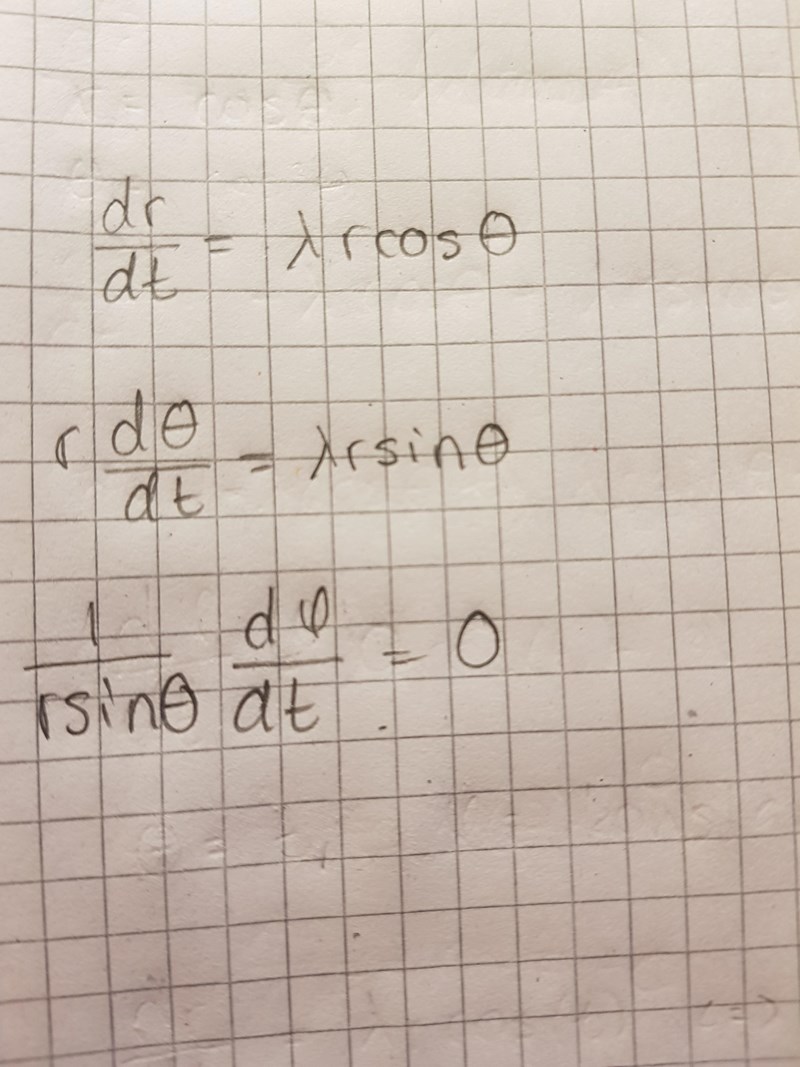 dr/dt = λrcosθ
r dθ/dt = λrsinθ
1/rsinθ dφ/dt = 0